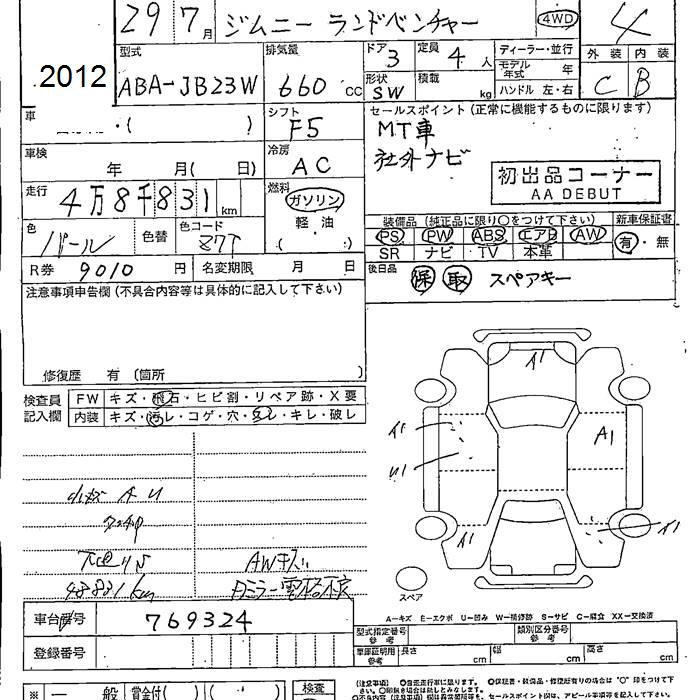 29 7月
ジムニー ランドベンチャー
4WD
4
2012
型式
ABA-JB23W
排気量
660 cc
ドア 3
定員 4人
形状 SW
積載 kg
ディーラー・並行
モデル年式 年
ハンドル 左・右
外装 C
内装 B
車
・( )
シフト
F5
セールスポイント(正常に機能するものに限ります)
MT車
社外ナビ
初出品コーナー
AA DEBUT
車検
年 月( 日)
冷房
AC
走行
4万8千831km
燃料
ガソリン
軽・油
( )
色
パール
色替
色コード
R券 9010円
名変期限 月 日
装備品(純正品に限り〇をつけて下さい)
新車保証書
PS PW ABS エアB AW
有・無
SR ナビ TV 本革
後日品
保 取 スペアキー
注意事項申告欄(不具合内容等は具体的に記入して下さい)
修復歴 有(箇所 )
検査員記入欄
FW キズ・飛石・ヒビ割・リペア跡・X要
内装 キズ・汚レ・コゲ・穴・スレ・キレ・破レ
小キズ A U
下回りS
48831km
AWキズ
A1
スペア
A-キズ E-エクボ U-凹み W-補修跡 S-サビ C-腐食 XX-交換済
車台番号 769324
登録番号
型式指定番号
参考
類別区分番号
参考
車庫証明用
参考
長さ cm
幅 cm
高さ cm
※ 一 般 賞金付( )(
検査